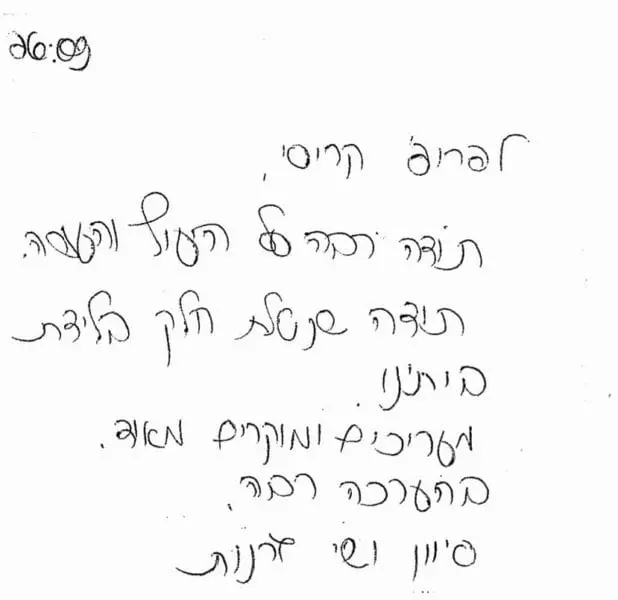 26:09
לפרופ' קריסי,
תודה רבה על היעוץ
תודה שנטלת חלק בלידת
ביתינו.
מעריכים ומוקרים מאוד.
בהערכה רבה,
סיוון ושי גרנות